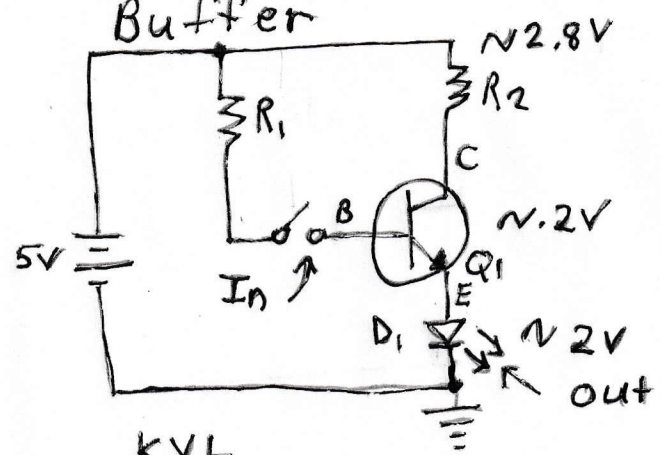 Buffer
~2.8V
R1
R2
C
B
~.2V
5V
In
Q1
E
D1
~2V
out
KVL